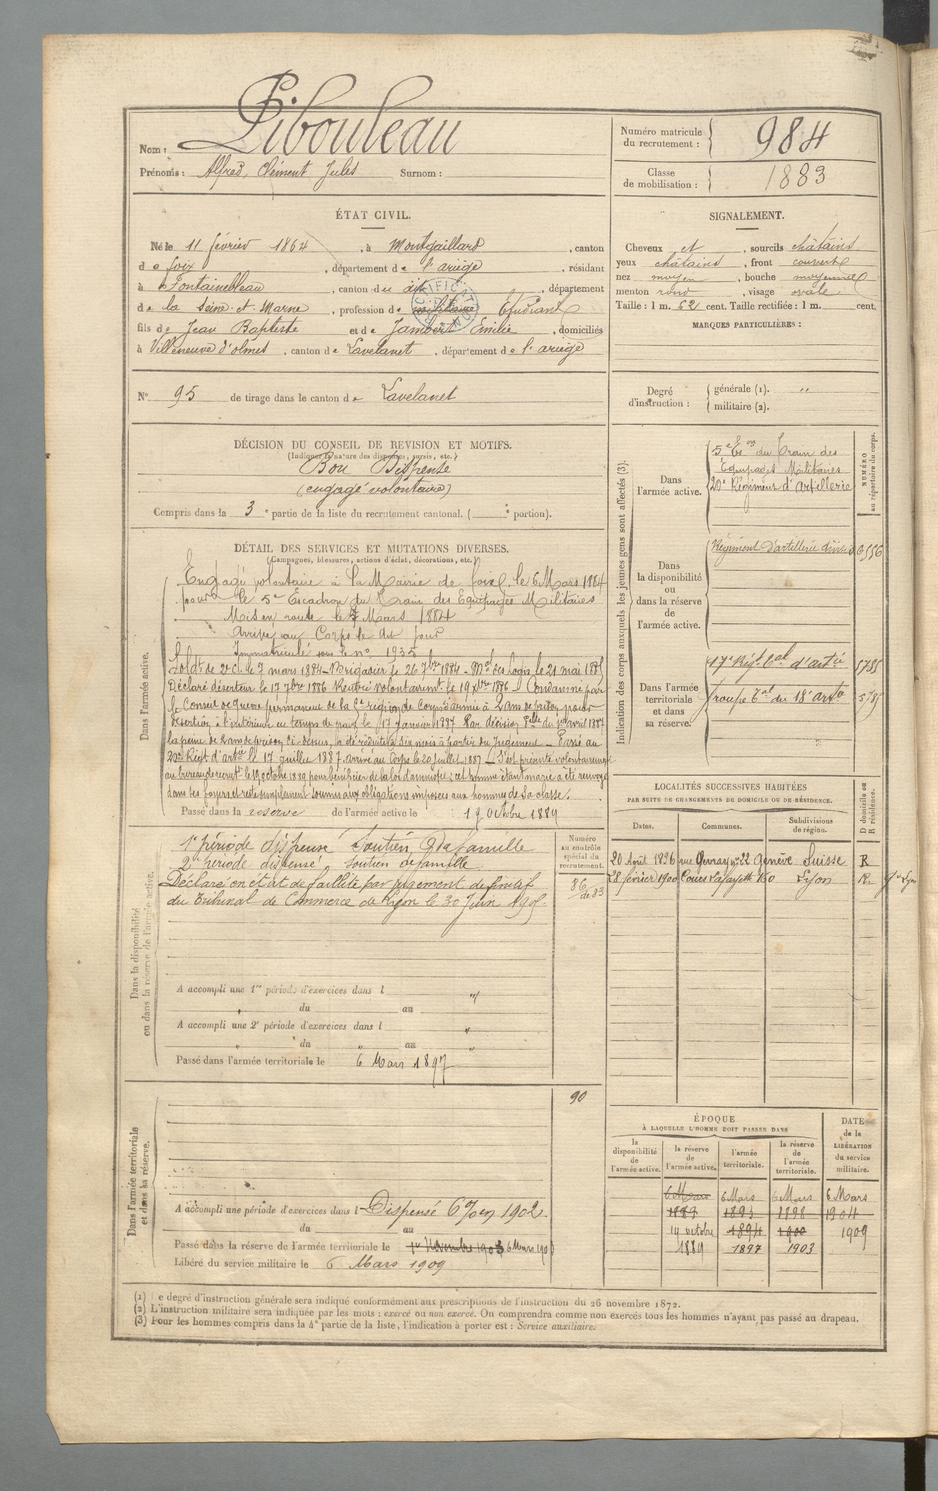 Nom : Pibouleau
Prénoms : Alfred, Clément Jules Surnom :
Numéro matricule du recrutement : 984
Classe de mobilisation : 1883
ÉTAT CIVIL.
Né le 11 février 1864, à Montgaillard, canton
de foix, département de l'ariège, résidant
à Fontainebleau, canton du dit, département
de la Seine-et-Marne, profession de Étudiant
fils de Jean Baptiste et de Jambert Emilie, domiciliés
à Villeneuve d'olmes, canton de Lavelanet, département de l'ariège
N° 95 de tirage dans le canton de Lavelanet
SIGNALEMENT.
Cheveux et, sourcils châtains
yeux châtains, front couvert
nez moyen, bouche moyenne
menton rond, visage ovale
Taille : 1 m. 62 cent. Taille rectifiée : 1 m. cent.
MARQUES PARTICULIÈRES :
Degré d'instruction : générale (1). "
militaire (2).
DÉCISION DU CONSEIL DE REVISION ET MOTIFS.
(Indiquer la nature des dispenses, sursis, etc.)
Bon Dispensé
(engagé volontaire)
Compris dans la 3e partie de la liste du recrutement cantonal. ( e portion).
DÉTAIL DES SERVICES ET MUTATIONS DIVERSES.
(Campagnes, blessures, actions d'éclat, décorations, etc.)
Dans l'armée active.
Engagé volontaire à la Mairie de foix, le 6 Mars 1884
pour le 5e Escadron du Train des Equipages Militaires
Mis en route le 7 Mars 1884
Arrivé au Corps le dit jour
Immatriculé sous le no 1935
Soldat de 2e cl. le 7 mars 1884 – Brigadier le 26 7bre 1884 – Mal des Logis le 21 mai 1885
Déclaré déserteur le 17 7bre 1886 Rentré volontairemt le 19 xbre 1886 Condamné par
le Conseil de guerre permanent de la 5e région de Corps d'armée à 2 ans de prison pour
désertion à l'intérieur en temps de paix le 17 janvier 1887. Par décision Pelle du 1er avril 1887
la peine de 2 ans de prison, ci-dessus, a été réduite à six mois à partir du Jugement – Passé au
20e Régt d'artie le 17 juillet 1887, arrivé au Corps le 20 juillet 1887 – S'est présenté volontairement
au bureau de recrutt le 19 octobre 1889 pour bénéficier de la loi d'amnistie ; cet homme étant marié a été renvoyé
dans ses foyers et reste simplement soumis aux obligations imposées aux hommes de sa classe.
Passé dans la reserve de l'armée active le 19 Octobre 1889
Indication des corps auxquels les jeunes gens sont affectés (3).
NUMÉRO au répertoire du corps.
Dans l'armée active.
5e Eson du Train des
Equipages Militaires
20e Régiment d'artillerie
Dans la disponibilité ou dans la réserve de l'armée active.
Régiment d'artillerie
Dans l'armée territoriale et dans sa réserve.
17e Régt tal d'artie
troupe tal du 18e artie
LOCALITÉS SUCCESSIVES HABITÉES
PAR SUITE DE CHANGEMENTS DE DOMICILE OU DE RÉSIDENCE.
Dates. Communes. Subdivisions de région. D domicile ou R résidence.
20 Août 1896 rue no 22 Genève Suisse R
28 février 1900 Cours Lafayette Lyon R
Dans la disponibilité ou dans la réserve de l'armée active.
Numéro au contrôle spécial du recrutement.
86/de 83
1re période dispensé Soutien de famille
2e période dispensé Soutien de famille
Déclaré en état de faillite par jugement définitif
du Tribunal de Commerce de Lyon le 30 Juin 1905
A accompli une 1re période d'exercices dans l "
" du au
A accompli une 2e période d'exercices dans l "
" du " au "
Passé dans l'armée territoriale le 6 Mars 1897
Dans l'armée territoriale et dans sa réserve.
90
A accompli une période d'exercices dans l Dispensé 6% en 1902.
du au
Passé dans la réserve de l'armée territoriale le 1er Novembre 1903 6 Mars 190
Libéré du service militaire le 6 Mars 1909
ÉPOQUE
À LAQUELLE L'HOMME DOIT PASSER DANS
DATE de la LIBÉRATION du service militaire.
la disponibilité de l'armée active. la réserve de l'armée active. l'armée territoriale. la réserve de l'armée territoriale.
6 Mars 6 Mars 6 Mars 6 Mars
1889 1893 1898 1904
19 octobre 1894 1900 1909
1889 1897 1903
(1) Le degré d'instruction générale sera indiqué conformément aux prescriptions de l'instruction du 26 novembre 1872.
(2) L'instruction militaire sera indiquée par les mots : exercé ou non exercé. On comprendra comme non exercés tous les hommes n'ayant pas passé au drapeau.
(3) Pour les hommes compris dans la 4e partie de la liste, l'indication à porter est : Service auxiliaire.